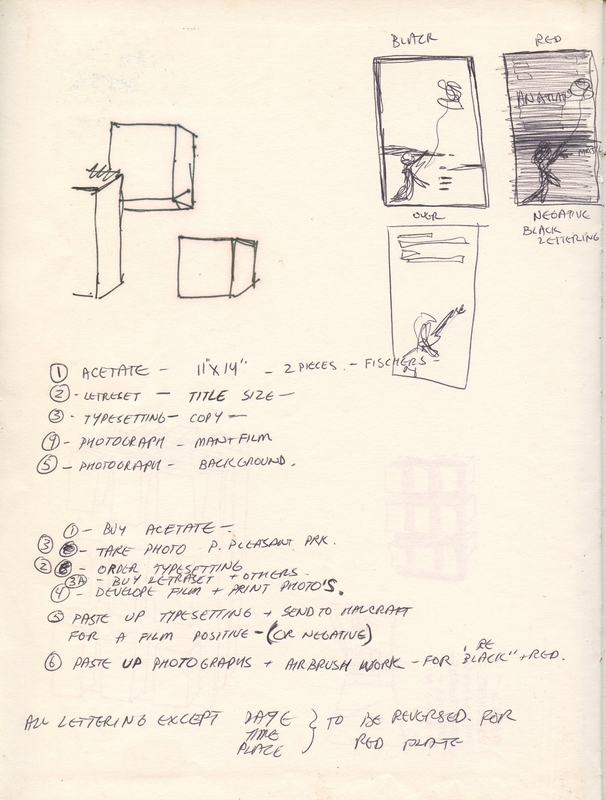 BLACK
RED
AN ATLAN
OVER
NEGATIVE
BLACK
LETTERING
① ACETATE - 11"X14" - 2 PIECES. - FISCHERS -
② - LETRESET - TITLE SIZE -
③ - TYPESETTING - COPY -
④ - PHOTOGRAPH - MAN + FILM
⑤ - PHOTOGRAPH - BACKGROUND.
① - BUY ACETATE -
③ - TAKE PHOTO P. PLEASANT PRK.
② - ORDER TYPESETTING
③A - BUY LETRASET + OTHERS.
④ - DEVELOPE FILM + PRINT PHOTO'S.
⑤ PASTE UP TYPESETTING + SEND TO MALCRAFT
FOR A FILM POSITIVE - (OR NEGATIVE)
⑥ PASTE UP PHOTOGRAPHS + AIRBRUSH WORK - FOR "BLACK" + RED.
ALL LETTERING EXCEPT DATE TIME PLACE } TO BE REVERSED. FOR
RED PLATE